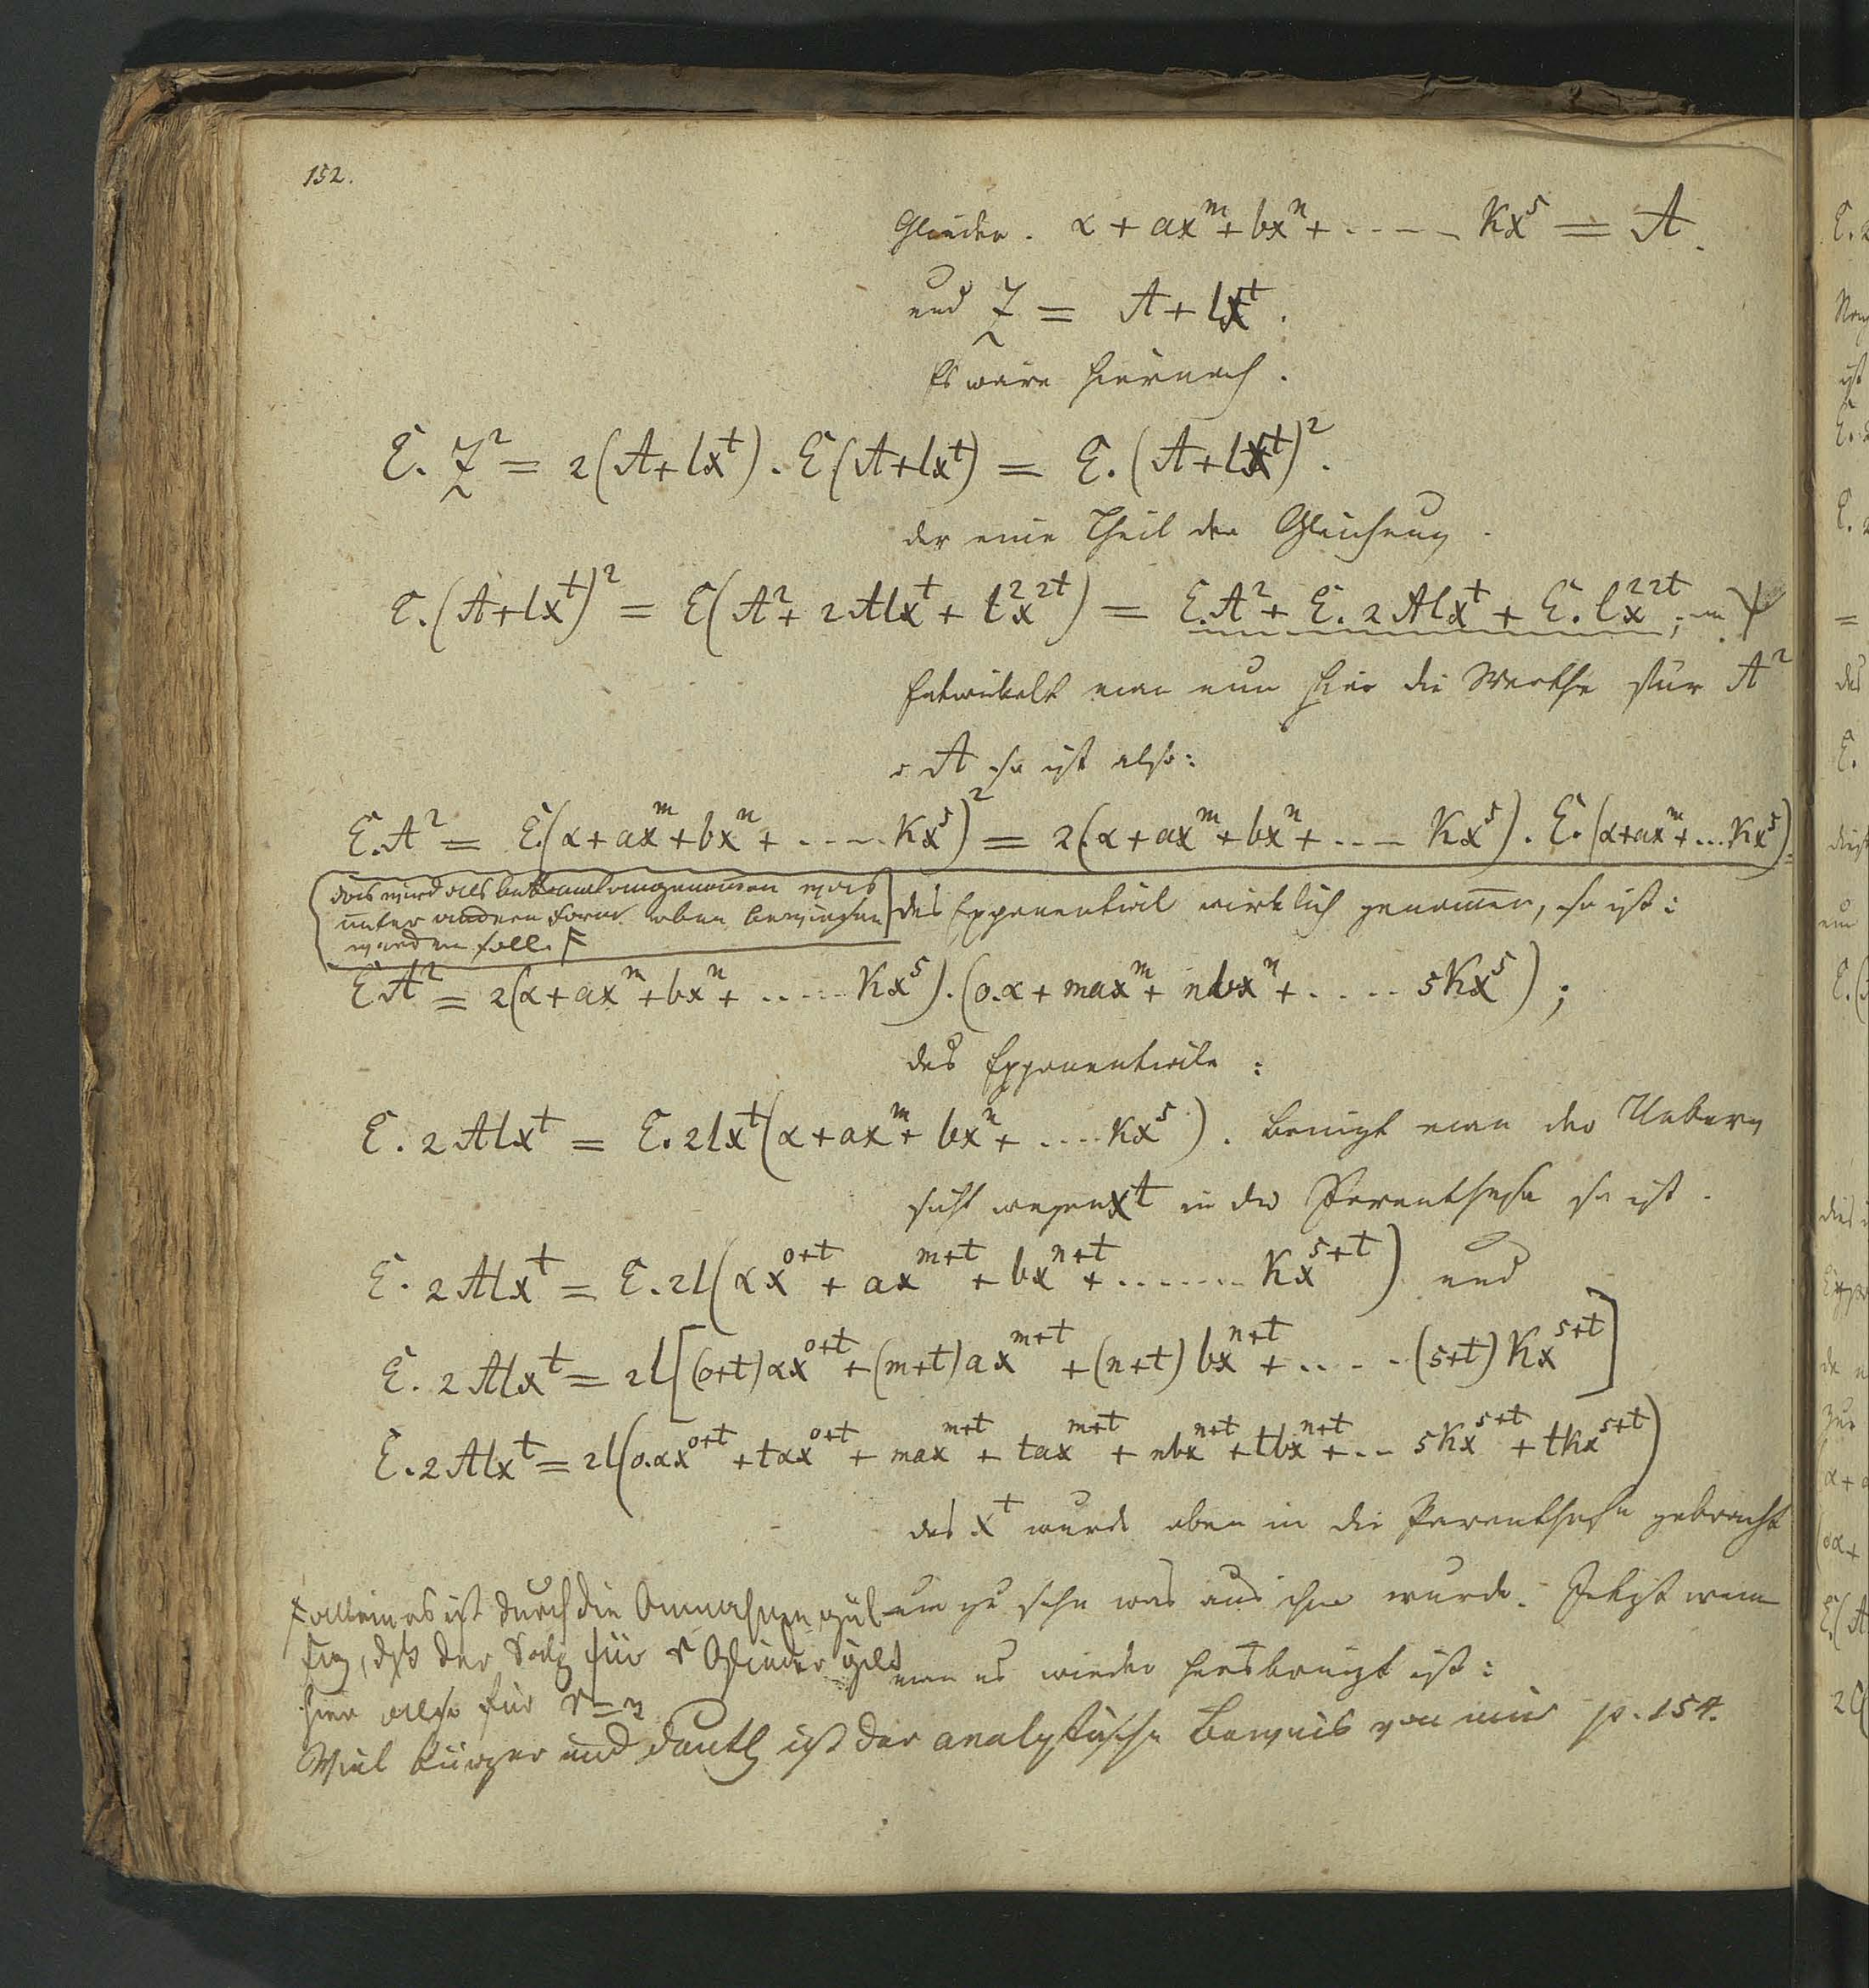 152.
Glieder. α + ax^m + bx^n + ..... Kx^s = A.
und Z = A + lx^t.
Es wäre hiernach.
E. Z² = 2(A+lx^t). E(A+lx^t) = E. (A+lx^t)².
der eine Theil der Gleichung.
E.(A+lx^t)² = E(A² + 2Alx^t + l²x^2t) = E.A² + E. 2Alx^t + E. l²x^2t;
Entwickelt man nun hier die Werthe für A²
A so ist also:
E.A² = E.(α+ax^m+bx^n+ ..... Kx^s)² = 2(α+ax^m+bx^n+ .... Kx^s). E.(α+ax^m+...Kx^s)
das wird als bekannt angenommen was
unter andern Form oben bewiesen
werden soll. F
das Exponential wirklich genommen, so ist:
EA² = 2(α+ax^m+bx^n+ ..... Kx^s).(0.α + max^m + nbx^n + ..... sKx^s);
das Exponentiale:
E. 2Alx^t = E. 2lx^t(α+ax^m+ bx^n+ .... Kx^s). bringt man der Ueber
sicht wegen x^t in die Parenthese so ist.
E. 2Alx^t = E. 2l(αx^0+t + ax^m+t + bx^n+t + ....... Kx^s+t) und
E. 2Alx^t = 2l[(0+t)αx^0+t + (m+t)ax^m+t + (n+t)bx^n+t + ..... (s+t)Kx^s+t]
E. 2Alx^t = 2l(0.αx^0+t + tαx^0+t + max^m+t + tax^m+t + nbx^n+t + tbx^n+t + ... sKx^s+t + tKx^s+t)
das x^t wurde oben in die Parenthese gebracht
um zu sehn was aus ihm wurde. Jetzt wenn
man es wieder herausbringt ist:
F allein es ist durch die Annahmen gül
tig, daß der Satz für r Glieder gilt
hier also für r=
Viel kürzer und deutl ist der analytische Beweis von mir p. 154.